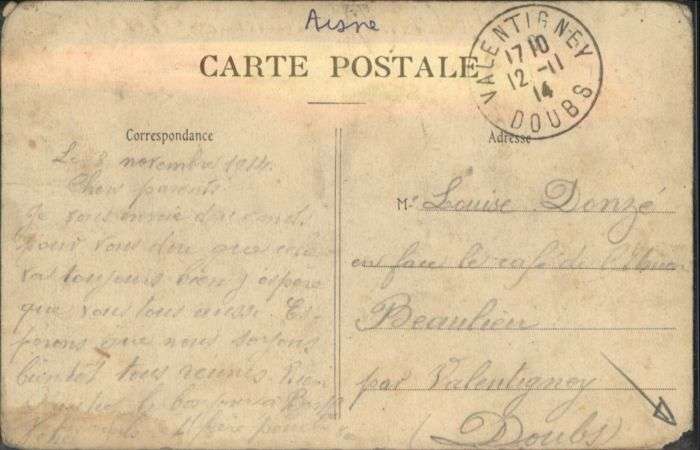 Aisne
CARTE POSTALE
VALENTIGNEY
1710
12-11
14
DOUBS
Correspondance
Le 8 novembre 1914.
Chers parents
Je vous envoie deux mots
pour vous dire que
va toujours bien j espere
que vous tous aussi. Es-
perons que nous soyons
bientot tous reunis. Rien
Adresse
M Louise Donzé
en face le café de
Beaulieu
par Valentigney
(Doubs)